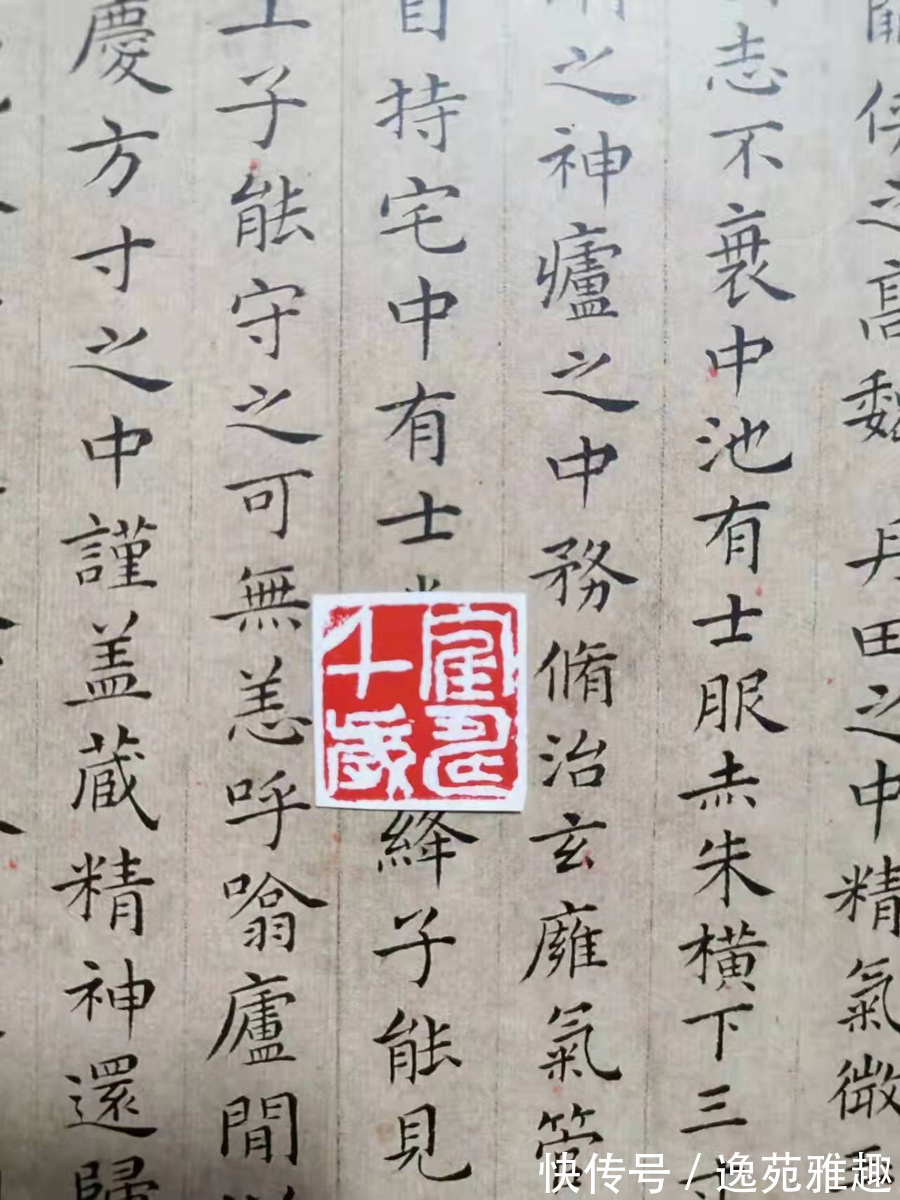 侠之髙魏丹田之中精氣微
志不衰中池有士服赤朱橫下三
之神廬之中務脩治玄廱氣管
自持宅中有士絳子能見
子能守之可無恙呼噏廬間
慶方寸之中謹盖藏精神還歸
千歲
快传号 / 逸苑雅趣